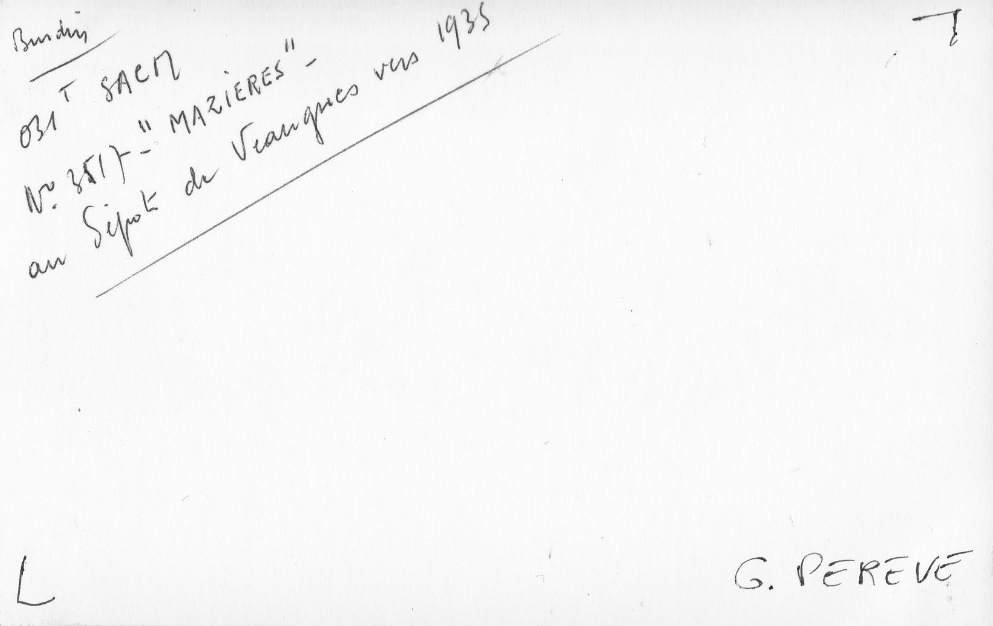 031T SACM
N° 3517 - "MAZIÈRES" -
au Dépôt de Veaugues vers 1935
G. PEREVE